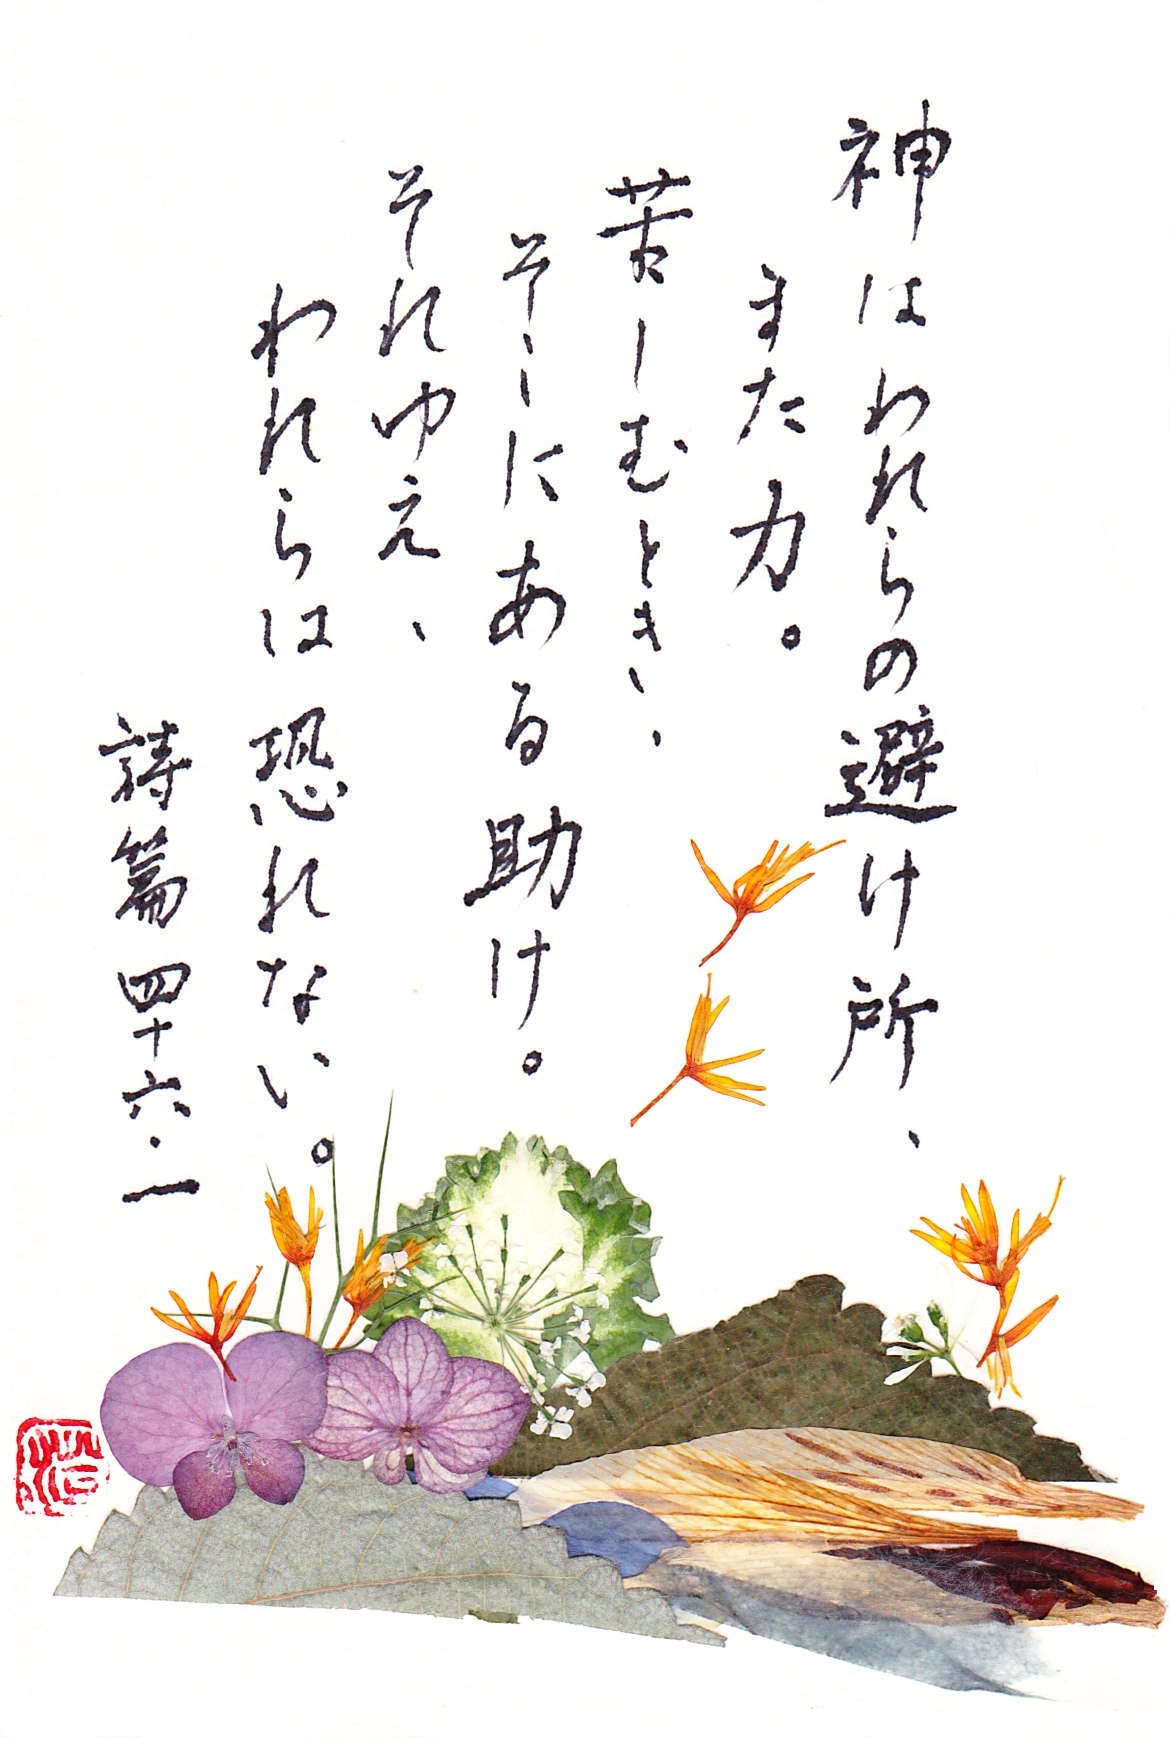 神はわれらの避け所、
また力。
苦しむとき、
そこにある助け。
それゆえ、
われらは恐れない。
詩篇四十六・一